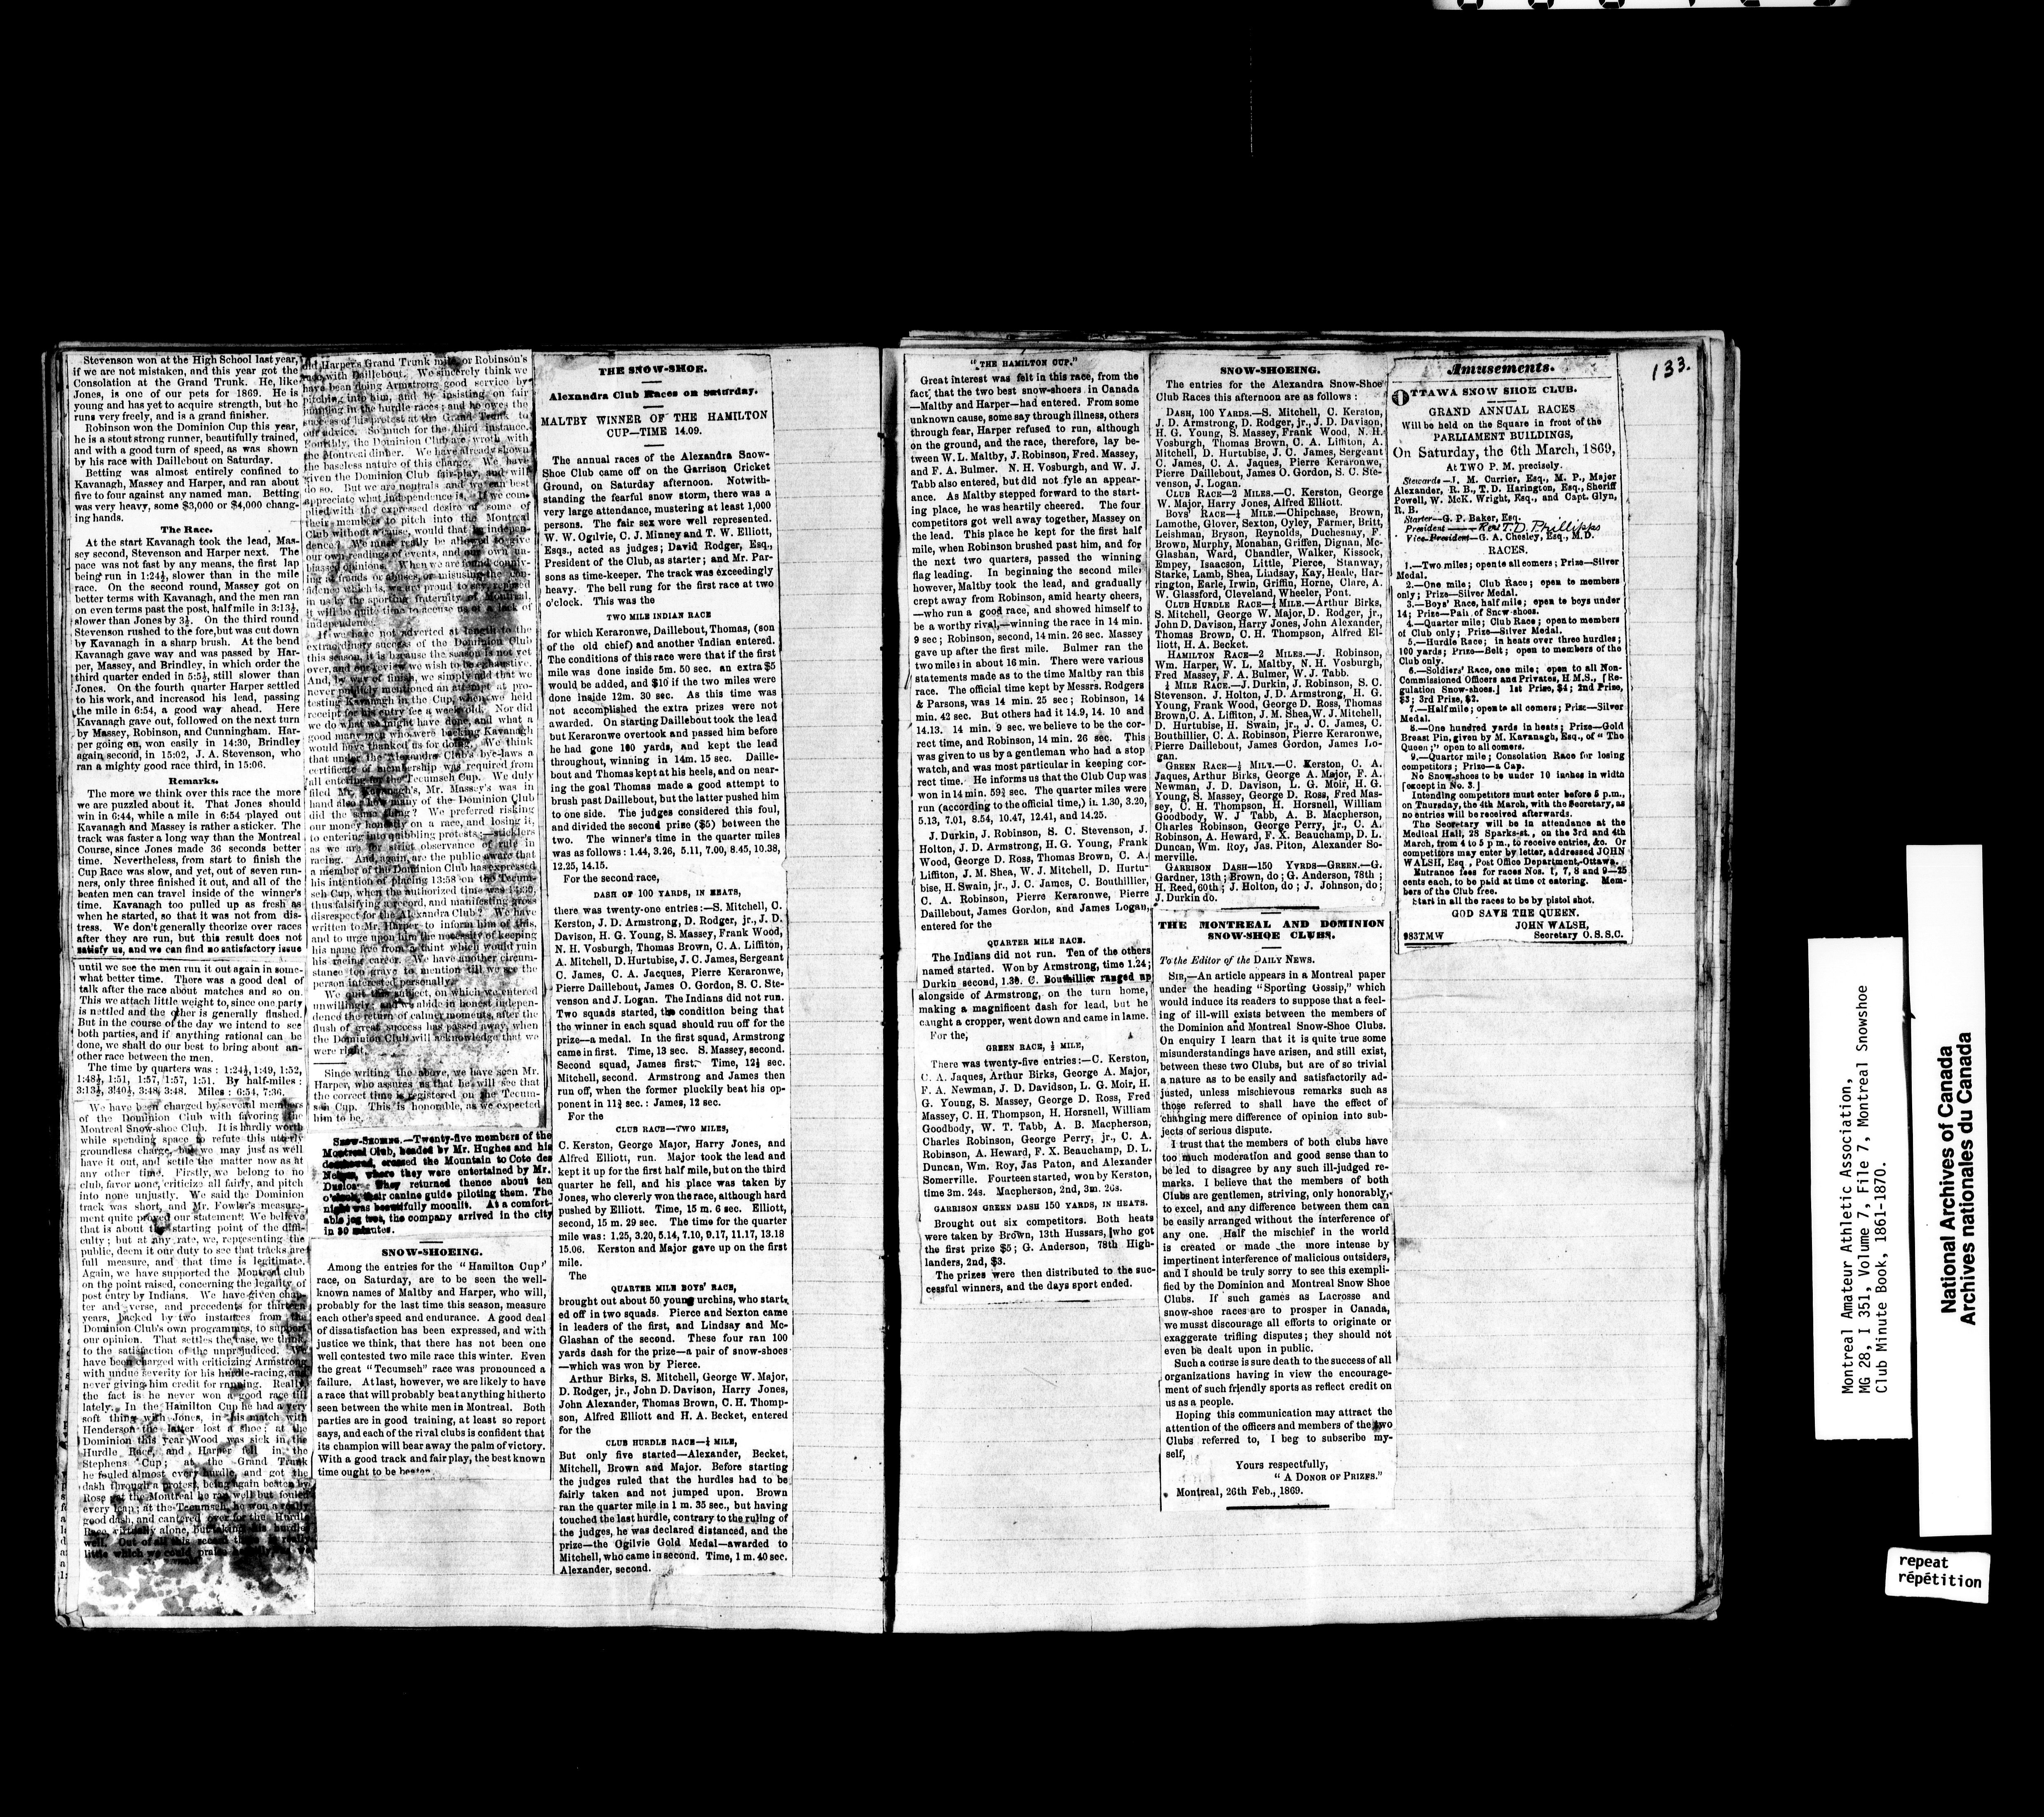 Stevenson won at the High School last year,
if we are not mistaken, and this year got the
Consolation at the Grand Trunk. He, like
Jones, is one of our pets for 1869. He is
young and has yet to acquire strength, but he
runs very freely, and is a grand finisher.
Robinson won the Dominion Cup this year,
he is a stout strong runner, beautifully trained,
and with a good turn of speed, as was shown
by his race with Daillebout on Saturday.
Betting was almost entirely confined to
Kavanagh, Massey and Harper, and ran about
five to four against any named man. Betting
was very heavy, some $3,000 or $4,000 chang-
ing hands.
The Race.
At the start Kavanagh took the lead, Mas-
sey second, Stevenson and Harper next. The
pace was not fast by any means, the first lap
being run in 1:24½, slower than in the mile
race. On the second round, Massey got on
better terms with Kavanagh, and the men ran
on even terms past the post, half mile in 3:13½,
slower than Jones by 3½. On the third round
Stevenson rushed to the fore, but was cut down
by Kavanagh in a sharp brush. At the bend
Kavanagh gave way and was passed by Har-
per, Massey, and Brindley, in which order the
third quarter ended in 5:5½, still slower than
Jones. On the fourth quarter Harper settled
to his work, and increased his lead, passing
the mile in 6:54, a good way ahead. Here
Kavanagh gave out, followed on the next turn
by Massey, Robinson, and Cunningham. Har-
per going on, won easily in 14:30, Brindley
again second, in 15:02, J. A. Stevenson, who
ran a mighty good race third, in 15:06.
Remarks.
The more we think over this race the more
we are puzzled about it. That Jones should
win in 6:44, while a mile in 6:54 played out
Kavanagh and Massey is rather a sticker. The
track was faster a long way than the Montreal
Course, since Jones made 36 seconds better
time. Nevertheless, from start to finish the
Cup Race was slow, and yet, out of seven run-
ners, only three finished it out, and all of the
beaten men can travel inside of the winner's
time. Kavanagh too pulled up as fresh as
when he started, so that it was not from dis-
tress. We don't generally theorize over races
after they are run, but this result does not
satisfy us, and we can find no satisfactory issue
until we see the men run it out again in some-
what better time. There was a good deal of
talk after the race about matches and so on.
This we attach little weight to, since one party
is nettled and the other is generally flushed.
But in the course of the day we intend to see
both parties, and if anything rational can be
done, we shall do our best to bring about an-
other race between the men.
The time by quarters was: 1:24½, 1:49, 1:52,
1:48½, 1:51, 1:57, 1:57, 1:51. By half-miles:
3:13½, 3:40½, 3:48, 3:48. Miles: 6:54, 7:36.
We have been charged by several members
of the Dominion Club with favoring the
Montreal Snow-shoe Club. It is hardly worth
while spending space to refute this utterly
groundless charge, but we may just as well
have it out, and settle the matter now as at
any other time. Firstly, we belong to no
club, favor none, criticize all fairly, and pitch
into none unjustly. We said the Dominion
track was short, and Mr. Fowler's measure-
ment quite proved our statement. We believe
that is about the starting point of the diffi-
culty; but at any rate, we, representing the
public, deem it our duty to see that tracks are
full measure, and that time is legitimate.
Again, we have supported the Montreal club
on the point raised, concerning the legality of
post entry by Indians. We have given chap-
ter and verse, and precedents for thirteen
years, backed by two instances from the
Dominion Club's own programmes, to support
our opinion. That settles the case, we think,
to the satisfaction of the unprejudiced. We
have been charged with criticizing Armstrong
with undue severity for his hurdle-racing, and
never giving him credit for running. Really
the fact is he never won a good race till
lately. In the Hamilton Cup he had a very
soft thing with Jones, in his match with
Henderson the latter lost a shoe; at the
Dominion this year Wood was sick in the
Hurdle Race, and Harper fell in the
Stephens Cup; at the Grand Trunk
he fouled almost every hurdle and got the
dash through a protest, being again beaten by
Rose at the Montreal he ran well but fouled
every leap; at the Tecumseh, he won a really
good dash, and cantered over for the Hurdle
Race virtually alone, but taking his hurdle
well. Out of all this
little which we could praise
did Harper's Grand Trunk mile, or Robinson's
with Daillebout. We sincerely think we
have been doing Armstrong good service by
pitching into him, and by insisting on fair
jumping in the hurdle races; and he owes the
success of his protest at the Grand Trunk to
our advice. So much for the third instance.
Fourthly, the Dominion Club are wroth with
the Montreal dinner. We have already shown
the baseless nature of this charge. We have
given the Dominion Club fair-play, and will
do so. But we are neutrals and we can best
appreciate what independence is. If we com-
plied with the expressed desire of some of
their members to pitch into the Montreal
Club without a cause, would that be indepen-
dence? We must really be allowed to give
our own readings of events, and our own un-
biassed opinions. When we are found conniv-
ing at frauds or abuses, or misusing the con-
fidence which is, we are proud to say, reposed
in us by the sporting fraternity of Montreal,
it will be quite time to accuse us of a lack of
independence.
If we have not adverted at length to the
extraordinary success of the Dominion Club
this season, it is because the season is not yet
over, and our review we wish to be exhaustive.
And, by way of finish, we simply add that we
never publicly mentioned an attempt at pro-
testing Kavanagh in the Cup, when we held
receipt for his entry fee a week old. Nor did
we do what we might have done, and what a
good many men who were backing Kavanagh
would have thanked us for doing. We think
that under the Alexandra Club's bye-laws a
certificate of membership was required from
all entering for the Tecumseh Cup. We duly
filed Mr. Kavanagh's, Mr. Massey's was in
hand also; how many of the Dominion Club
did the same thing? We preferred risking
our money honestly on a race, and losing it,
to entering into quibbling protests;—sticklers
as we are for strict observance of rule in
racing. And, again, are the public aware that
a member of the Dominion Club has expressed
his intention of placing 13:58 on the Tecum-
seh Cup, when the authorized time was 14:30,
thus falsifying a record, and manifesting gross
disrespect for the Alexandra Club? We have
written to Mr. Harper to inform him of this,
and to urge upon him the necessity of keeping
his name free from a taint which would ruin
his racing career. We have another circum-
stance too grave to mention till we see the
person interested personally.
We quit this subject, on which we entered
unwillingly, and we abide in honest indepen-
dence the return of calmer moments, after the
flush of great success has passed away, when
the Dominion Club will acknowledge that we
were right.
Since writing the above, we have seen Mr.
Harper, who assures us that he will see that
the correct time is registered on the Tecum-
seh Cup. This is honorable, as we expected
him to be.
SNOW-SHOEING.—Twenty-five members of the
Montreal Club, headed by Mr. Hughes and his
crossed the Mountain to Cote des
Neiges, where they were entertained by Mr.
Duclos. They returned thence about ten
o'clock, their canine guide piloting them. The
night was beautifully moonlit. At a comfort-
able jog trot, the company arrived in the city
in 30 minutes.
SNOW-SHOEING.
Among the entries for the "Hamilton Cup"
race, on Saturday, are to be seen the well-
known names of Maltby and Harper, who will,
probably for the last time this season, measure
each other's speed and endurance. A good deal
of dissatisfaction has been expressed, and with
justice we think, that there has not been one
well contested two mile race this winter. Even
the great "Tecumseh" race was pronounced a
failure. At last, however, we are likely to have
a race that will probably beat anything hitherto
seen between the white men in Montreal. Both
parties are in good training, at least so report
says, and each of the rival clubs is confident that
its champion will bear away the palm of victory.
With a good track and fair play, the best known
time ought to be beaten
THE SNOW-SHOE.
Alexandra Club Races on saturday.
MALTBY WINNER OF THE HAMILTON
CUP—TIME 14.09.
The annual races of the Alexandra Snow-
Shoe Club came off on the Garrison Cricket
Ground, on Saturday afternoon. Notwith-
standing the fearful snow storm, there was a
very large attendance, mustering at least 1,000
persons. The fair sex were well represented.
W. W. Ogilvie, C. J. Minney and T. W. Elliott,
Esqs., acted as judges; David Rodger, Esq.,
President of the Club, as starter; and Mr. Par-
sons as time-keeper. The track was exceedingly
heavy. The bell rung for the first race at two
o'clock. This was the
TWO MILE INDIAN RACE
for which Keraronwe, Daillebout, Thomas, (son
of the old chief) and another Indian entered.
The conditions of this race were that if the first
mile was done inside 5m. 50 sec. an extra $5
would be added, and $10 if the two miles were
done inside 12m. 30 sec. As this time was
not accomplished the extra prizes were not
awarded. On starting Daillebout took the lead
but Keraronwe overtook and passed him before
he had gone 100 yards, and kept the lead
throughout, winning in 14m. 15 sec. Daille-
bout and Thomas kept at his heels, and on near-
ing the goal Thomas made a good attempt to
brush past Daillebout, but the latter pushed him
to one side. The judges considered this foul,
and divided the second prise ($5) between the
two. The winner's time in the quarter miles
was as follows: 1.44, 3.26, 5.11, 7.00, 8.45, 10.38,
12.25, 14.15.
For the second race,
DASH OF 100 YARDS, IN HEATS,
there was twenty-one entries:—S. Mitchell, C.
Kerston, J. D. Armstrong, D. Rodger, jr., J. D.
Davison, H. G. Young, S. Massey, Frank Wood,
N. H. Vosburgh, Thomas Brown, C. A. Liffiton,
A. Mitchell, D. Hurtubise, J. C. James, Sergeant
C. James, C. A. Jacques, Pierre Keraronwe,
Pierre Daillebout, James O. Gordon, S. C. Ste-
venson and J. Logan. The Indians did not run.
Two squads started, the condition being that
the winner in each squad should ruu off for the
prize—a medal. In the first squad, Armstrong
came in first. Time, 13 sec. S. Massey, second.
Second squad, James first. Time, 12½ sec.
Mitchell, second. Armstrong and James then
run off, when the former pluckily beat his op-
ponent in 11¾ sec.: James, 12 sec.
For the
CLUB RACE—TWO MILES,
C. Kerston, George Major, Harry Jones, and
Alfred Elliott, run. Major took the lead and
kept it up for the first half mile, but on the third
quarter he fell, and his place was taken by
Jones, who cleverly won the race, although hard
pushed by Elliott. Time, 15 m. 6 sec. Elliott,
second, 15 m. 29 sec. The time for the quarter
mile was: 1.25, 3.20, 5.14, 7.10, 9.17, 11.17, 13.18
15.06. Kerston and Major gave up on the first
mile.
The
QUARTER MILE BOYS' RACE,
brought out about 50 young urchins, who start-
ed off in two squads. Pierce and Sexton came
in leaders of the first, and Lindsay and Mc-
Glashan of the second. These four ran 100
yards dash for the prize—a pair of snow-shoes
—which was won by Pierce.
Arthur Birks, S. Mitchell, George W. Major,
D. Rodger, jr., John D. Davison, Harry Jones,
John Alexander, Thomas Brown, C. H. Thomp-
son, Alfred Elliott and H. A. Becket, entered
for the
CLUB HURDLE RACE—¼ MILE,
But only five started—Alexander, Becket,
Mitchell, Brown and Major. Before starting
the judges ruled that the hurdles had to be
fairly taken and not jumped upon. Brown
ran the quarter mile in 1 m. 35 sec., but having
touched the last hurdle, contrary to the ruling of
the judges, he was declared distanced, and the
prize—the Ogilvie Gold Medal—awarded to
Mitchell, who came in second. Time, 1 m. 40 sec.
Alexander, second.
"THE HAMILTON CUP."
Great interest was felt in this race, from the
fact, that the two best snow-shoers in Canada
—Maltby and Harper—had entered. From some
unknown cause, some say through illness, others
through fear, Harper refused to run, although
on the ground, and the race, therefore, lay be-
tween W. L. Maltby, J. Robinson, Fred. Massey,
and F. A. Bulmer. N. H. Vosburgh, and W. J.
Tabb also entered, but did not fyle an appear-
ance. As Maltby stepped forward to the start-
ing place, he was heartily cheered. The four
competitors got well away together, Massey on
the lead. This place he kept for the first half
mile, when Robinson brushed past him, and for
the next two quarters, passed the winning
flag leading. In beginning the second mile,
however, Maltby took the lead, and gradually
crept away from Robinson, amid hearty cheers,
—who run a good race, and showed himself to
be a worthy rival,—winning the race in 14 min.
9 sec; Robinson, second, 14 min. 26 sec. Massey
gave up after the first mile. Bulmer ran the
two miles in about 16 min. There were various
statements made as to the time Maltby ran this
race. The official time kept by Messrs. Rodgers
& Parsons, was 14 min. 25 sec; Robinson, 14
min. 42 sec. But others had it 14.9, 14. 10 and
14.13. 14 min. 9 sec. we believe to be the cor-
rect time, and Robinson, 14 min. 26 sec. This
was given to us by a gentleman who had a stop
watch, and was most particular in keeping cor-
rect time. He informs us that the Club Cup was
won in 14 min. 59¾ sec. The quarter miles were
run (according to the official time,) in 1.30, 3.20,
5.13, 7.01, 8.54, 10.47, 12.41, and 14.25.
J. Durkin, J. Robinson, S. C. Stevenson, J.
Holton, J. D. Armstrong, H. G. Young, Frank
Wood, George D. Ross, Thomas Brown, C. A.
Liffiton, J. M. Shea, W. J. Mitchell, D. Hurtu-
bise, H. Swain, jr., J. C. James, C. Bouthillier,
C. A. Robinson, Pierre Keraronwe, Pierre
Daillebout, James Gordon, and James Logan,
entered for the
QUARTER MILE RACE.
The Indians did not run. Ten of the others
named started. Won by Armstrong, time 1.24;
Durkin second, 1.30. C. Bouthillier ranged up
alongside of Armstrong, on the turn home,
making a magnificent dash for lead, but he
caught a cropper, went down and came in lame.
For the,
GREEN RACE, ½ MILE,
There was twenty-five entries:—C. Kerston,
C. A. Jaques, Arthur Birks, George A. Major,
F. A. Newman, J. D. Davidson, L. G. Moir, H.
G. Young, S. Massey, George D. Ross, Fred
Massey, C. H. Thompson, H. Horsnell, William
Goodbody, W. T. Tabb, A. B. Macpherson,
Charles Robinson, George Perry, jr., C. A.
Robinson, A. Heward, F. X. Beauchamp, D. L.
Duncan, Wm. Roy, Jas Paton, and Alexander
Somerville. Fourteen started, won by Kerston,
time 3m. 24s. Macpherson, 2nd, 3m. 26s.
GARRISON GREEN DASH 150 YARDS, IN HEATS.
Brought out six competitors. Both heats
were taken by Brown, 13th Hussars, who got
the first prize $5; G. Anderson, 78th High-
landers, 2nd, $3.
The prizes were then distributed to the suc-
cessful winners, and the days sport ended.
SNOW-SHOEING.
The entries for the Alexandra Snow-Shoe
Club Races this afternoon are as follows:
DASH, 100 YARDS.—S. Mitchell, C. Kerston,
J. D. Armstrong, D. Rodger, jr., J. D. Davison,
H. G. Young, S. Massey, Frank Wood, N. H.
Vosburgh, Thomas Brown, C. A. Liffiton, A.
Mitchell, D. Hurtubise, J. C. James, Sergeant
C. James, C. A. Jaques, Pierre Keraronwe,
Pierre Daillebout, James O. Gordon, S. C. Ste-
venson, J. Logan.
CLUB RACE—2 MILES.—C. Kerston, George
W. Major, Harry Jones, Alfred Elliott.
BOYS' RACE—¼ MILE.—Chipchase, Brown,
Lamothe, Glover, Sexton, Oyley, Farmer, Britt,
Leishman, Bryson, Reynolds, Duchesnay, F.
Brown, Murphy, Monahan, Griffen, Dignan, Mc-
Glashan, Ward, Chandler, Walker, Kissock,
Empey, Isaacson, Little, Pierce, Stanway,
Starke, Lamb, Shea, Lindsay, Kay, Heale, Har-
rington, Earle, Irwin, Griffin, Horne, Clare, A.
W. Glassford, Cleveland, Wheeler, Pont.
CLUB HURDLE RACE—¼ MILE.—Arthur Birks,
S. Mitchell, George W. Major, D. Rodger, jr.,
John D. Davison, Harry Jones, John Alexander,
Thomas Brown, C. H. Thompson, Alfred El-
liott, H. A. Becket.
HAMILTON RACE—2 MILES.—J. Robinson,
Wm. Harper, W. L. Maltby, N. H. Vosburgh,
Fred Massey, F. A. Bulmer, W. J. Tabb.
¼ MILE RACE.—J. Durkin, J. Robinson, S. C.
Stevenson. J. Holton, J. D. Armstrong, H. G.
Young, Frank Wood, George D. Ross, Thomas
Brown, C. A. Liffiton, J. M. Shea, W. J. Mitchell,
D. Hurtubise, H. Swain, jr., J. C. James, C.
Bouthillier, C. A. Robinson, Pierre Keraronwe,
Pierre Daillebout, James Gordon, James Lo-
gan.
GREEN RACE—½ MILE.—C. Kerston, C. A.
Jaques, Arthur Birks, George A. Major, F. A.
Newman, J. D. Davison, L. G. Moir, H. G.
Young, S. Massey, George D. Ross, Fred Mas-
sey, C. H. Thompson, H. Horsnell, William
Goodbody, W. J Tabb, A. B. Macpherson,
Charles Robinson, George Perry, jr., C. A.
Robinson, A. Heward, F. X. Beauchamp, D. L.
Duncan, Wm. Roy, Jas. Piton, Alexander So-
merville.
GARRISON DASH—150 YVRDS—GREEN.—G.
Gardner, 13th; Brown, do; G. Anderson, 78th;
H. Reed, 60th; J. Holton, do; J. Johnson, do;
J. Durkin do.
THE MONTREAL AND DOMINION
SNOW-SHOE CLUBS.
To the Editor of the DAILY NEWS.
SIR,—An article appears in a Montreal paper
under the heading "Sporting Gossip," which
would induce its readers to suppose that a feel-
ing of ill-will exists between the members of
the Dominion and Montreal Snow-Shoe Clubs.
On enquiry I learn that it is quite true some
misunderstandings have arisen, and still exist,
between these two Clubs, but are of so trivial
a nature as to be easily and satisfactorily ad-
justed, unless mischievous remarks such as
those referred to shall have the effect of
changing mere difference of opinion into sub-
jects of serious dispute.
I trust that the members of both clubs have
too much moderation and good sense than to
be led to disagree by any such ill-judged re-
marks. I believe that the members of both
Clubs are gentlemen, striving, only honorably,
to excel, and any difference between them can
be easily arranged without the interference of
any one. Half the mischief in the world
is created or made the more intense by
impertinent interference of malicious outsiders,
and I should be truly sorry to see this exempli-
fied by the Dominion and Montreal Snow Shoe
Clubs. If such games as Lacrosse and
snow-shoe races are to prosper in Canada,
we musst discourage all efforts to originate or
exaggerate trifling disputes; they should not
even be dealt upon in public.
Such a course is sure death to the success of all
organizations having in view the encourage-
ment of such friendly sports as reflect credit on
us as a people.
Hoping this communication may attract the
attention of the officers and members of the two
Clubs referred to, I beg to subscribe my-
self,
Yours respectfully,
"A DONOR OF PRIZES."
Montreal, 26th Feb., 1869.
133.
Amusements.
OTTAWA SNOW SHOE CLUB.
GRAND ANNUAL RACES
Will be held on the Square in front of the
PARLIAMENT BUILDINGS,
On Saturday, the 6th March, 1869,
At TWO P. M. precisely.
Stewards—J. M. Currier, Esq., M. P., Major
Alexander, R. B., T. D. Harington, Esq., Sheriff
Powell, W. McK. Wright, Esq., and Capt. Glyn,
R. B.
Starter—G. P. Baker, Esq.
President—Revd T. D. Phillipps
Vice-President—G. A. Chesley, Esq., M.D.
RACES.
1.—Two miles; open to all comers; Prize—Silver
Medal.
2.—One mile; Club Race; open to members
only; Prize—Silver Medal.
3.—Boys' Race, half mile; open to boys under
14; Prize—Pair of Snow-shoes.
4.—Quarter mile; Club Race; open to members
of Club only; Prize—Silver Medal.
5.—Hurdle Race; in heats over three hurdles;
100 yards; Prize—Belt; open to members of the
Club only.
6.—Soldiers' Race, one mile; open to all Non-
Commissioned Officers and Privates, H.M.S., [Re-
gulation Snow-shoes.] 1st Prize, $4; 2nd Prize,
$3; 3rd Prize, $2.
7.—Half mile; open to all comers; Prize—Silver
Medal.
8.—One hundred yards in heats; Prize—Gold
Breast Pin, given by M. Kavanagh, Esq., of "The
Queen;" open to all comers.
9.—Quarter mile; Consolation Race for losing
competitors; Prize—a Cap.
No Snow-shoes to be under 10 inches in width
[except in No. 3.]
Intending competitors must enter before 5 p.m.,
on Thursday, the 4th March, with the Secretary, as
no entries will be received afterwards.
The Secretary will be in attendance at the
Medical Hall, 28 Sparks-st., on the 3rd and 4th
March, from 4 to 5 p m., to receive entries, &c. Or
competitors may enter by letter, addressed JOHN
WALSH, Esq, Post Office Department, Ottawa.
Entrance fees for races Nos. 1, 7, 8 and 9—25
cents each, to be paid at time of entering. Mem-
bers of the Club free.
Start in all the races to be by pistol shot.
GOD SAVE THE QUEEN.
JOHN WALSH,
Secretary O.S.S.C.
983TMW
Montreal Amateur Athletic Association,
MG 28, I 351, Volume 7, File 7, Montreal Snowshoe
Club Minute Book, 1861-1870.
National Archives of Canada
Archives nationales du Canada
repeat
répétition